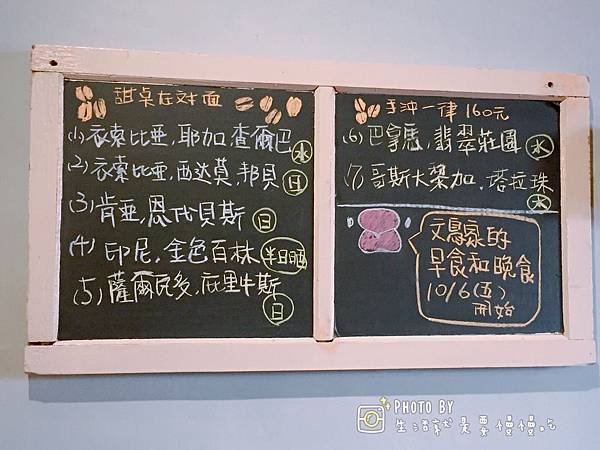 甜桌在对面
(1)衣索比亞,耶加,查爾巴 水
(2)衣索比亞,西达莫,邦貝 日
(3)肯亞,恩代貝斯 日
(4)印尼,金色百林 半日晒
(5)薩爾瓦多,庇里牛斯 日
手沖一律160元
(6)巴拿馬,翡翠莊園 水
(7)哥斯大黎加,塔拉珠 水
文鳥家的
早食和晚食
10/6(五)
開始
PHOTO BY
生活就是要慢慢吃